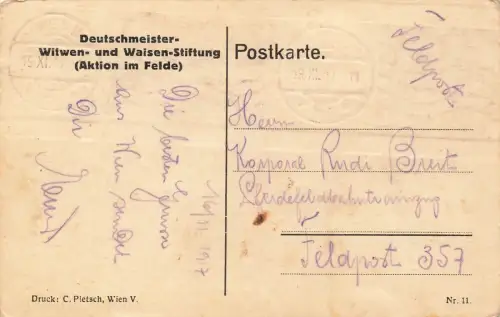 Deutschmeister-
Witwen- und Waisen-Stiftung
(Aktion im Felde)
Postkarte.
Feldpost
Die besten
aus Wien sendet
Dir
16/XI 1917
Herrn
Korporal Rudi Breit
Feldpost 357
Druck: C. Pietsch, Wien V.
Nr. 11.